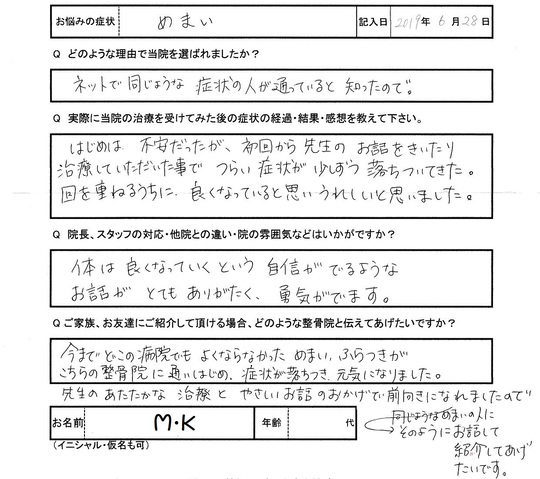 お悩みの症状 めまい 記入日 2019年 6月28日
Q どのような理由で当院を選ばれましたか？
ネットで同じような症状の人が通っていると知ったので。
Q 実際に当院の治療を受けてみた後の症状の経過・結果・感想を教えて下さい。
はじめは不安だったが、初回から先生のお話をきいたり
治療していただいた事でつらい症状が少しずつ落ちついてきた。
回を重ねるうちに、良くなっていると思いうれしいと思いました。
Q 院長、スタッフの対応・他院との違い・院の雰囲気などはいかがですか？
体は良くなっていくという自信がでるような
お話がとてもありがたく、勇気がでます。
Q ご家族、お友達にご紹介して頂ける場合、どのような整骨院と伝えてあげたいですか？
今までどこの病院でもよくならなかっためまい、ふらつきが
こちらの整骨院に通いはじめ、症状が落ちつき、元気になりました。
先生のあたたかな治療とやさしいお話のおかげで前向きになれましたので
同じようなめまいの人に
そのようにお話して
紹介してあげ
たいです。
お名前 M・K 年齢 代
(イニシャル・仮名も可)